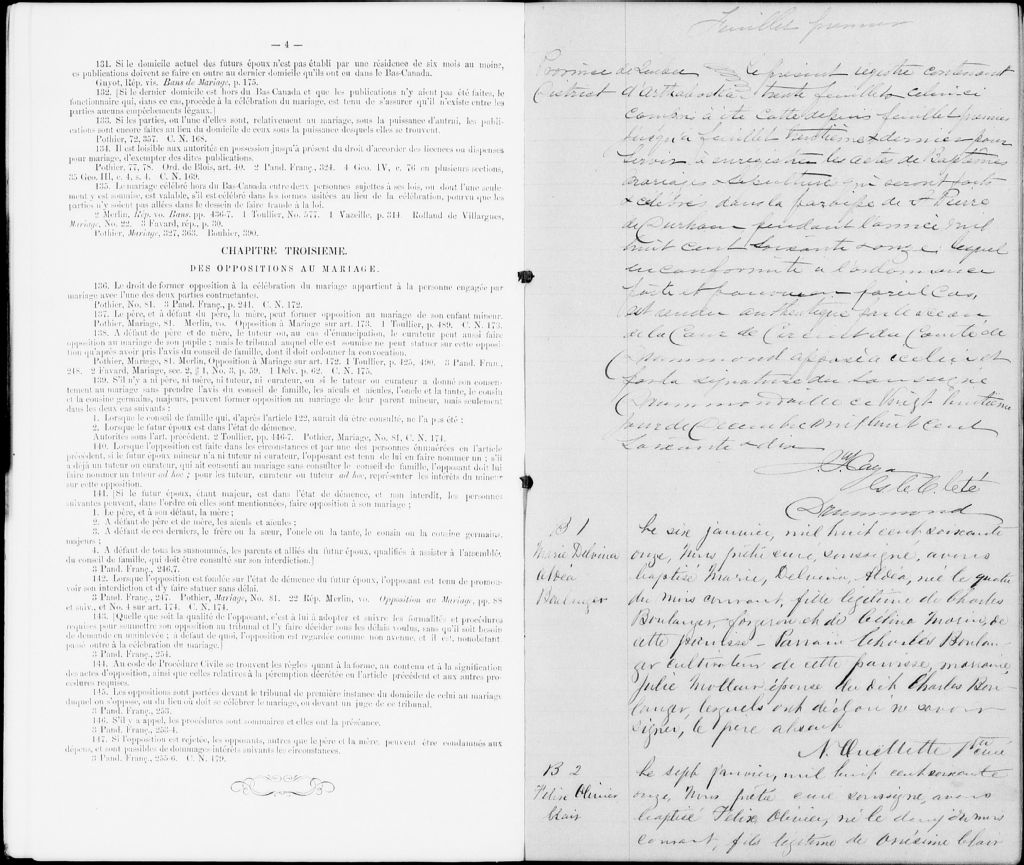 — 4 —
131. Si le domicile actuel des futurs époux n'est pas établi par une résidence de six mois au moins,
es publications doivent se faire en outre au dernier domicile qu'ils ont eu dans le Bas-Canada.
Guyot, Rép. vis. Bans de Mariage, p. 175.
132. [Si le dernier domicile est hors du Bas Canada et que les publications n'y aient pas été faites, le
fonctionnaire qui, dans ce cas, procède à la célébration du mariage, est tenu de s'assurer qu'il n'existe entre les
parties aucuns empêchements légaux.]
133. Si les parties, ou l'une d'elles, sont, relativement au mariage, sous la puissance d'autrui, les publi-
cations sont encore faites au lieu du domicile de ceux sous la puissance desquels elles se trouvent.
Pothier, 72, 357. C. N. 168.
134. Il est loisible aux autorités en possession jusqu'à présent du droit d'accorder des licences ou dispenses
pour mariage, d'exempter des dites publications.
Pothier, 77, 78. Ord. de Blois, art. 40. 2 Pand. Franç., 324. 4 Geo. IV, c. 76 en plusieurs sections,
35 Geo. III, c. 4, s. 4. C. N. 169.
135. Le mariage célébré hors du Bas-Canada entre deux personnes sujettes à ses lois, ou dont l'une seule-
ment y est soumise, est valable, s'il est célébré dans les formes usitées au lieu de la célébration, pourvu que les
parties n'y soient pas allées dans le dessein de faire fraude à la loi.
2 Merlin, Rép. vo. Bans, pp. 436-7. 1 Toullier, No. 577. 1 Vazeille, p. 314. Rolland de Villargues,
Mariage, No. 22. 3 Favard, rép., p. 39.
Pothier, Mariage, 327, 363. Bouhier, 390.
CHAPITRE TROISIEME.
DES OPPOSITIONS AU MARIAGE.
136. Le droit de former opposition à la célébration du mariage appartient à la personne engagée par
mariage avec l'une des deux parties contractantes.
Pothier, No. 81. 3 Pand. Franç., p. 241. C. N. 172.
137. Le père, et à défaut du père, la mère, peut former opposition au mariage de son enfant mineur.
Pothier, Mariage, 81. Merlin, vo. Opposition à Mariage sur art. 173. 1 Toullier, p. 489. C. N. 173.
138. A défaut de père et de mère, le tuteur ou, au cas d'émancipation, le curateur peut aussi faire
opposition au mariage de son pupille ; mais le tribunal auquel elle est soumise ne peut statuer sur cette opposi-
tion qu'après avoir pris l'avis du conseil de famille, dont il doit ordonner la convocation.
Pothier, Mariage, 81. Merlin, Opposition à Mariage sur art. 172. 1 Toullier, p. 425, 490. 3 Pand. Fran.,
248. 2 Favard, Mariage, sec. 2, § 1, No. 3, p. 59. 1 Delv. p. 62. C. N. 175.
139. S'il n'y a ni père, ni mère, ni tuteur, ni curateur, ou si le tuteur ou curateur a donné son consen-
tement au mariage sans prendre l'avis du conseil de famille, les aïeuls et aïeules, l'oncle et la tante, le cousin
et la cousine germains, majeurs, peuvent former opposition au mariage de leur parent mineur, mais seulement
dans les deux cas suivants :
1. Lorsque le conseil de famille qui, d'après l'article 122, aurait dû être consulté, ne l'a pas été ;
2. Lorsque le futur époux est dans l'état de démence.
Autorités sous l'art. précédent. 2 Toullier, pp. 446-7. Pothier, Mariage, No. 81, C. N. 174.
140. Lorsque l'opposition est faite dans les circonstances et par une des personnes énumérées en l'article
précédent, si le futur époux mineur n'a ni tuteur ni curateur, l'opposant est tenu de lui en faire nommer un ; s'il
a déjà un tuteur ou curateur, qui ait consenti au mariage sans consulter le conseil de famille, l'opposant doit lui
faire nommer un tuteur ad hoc ; pour les tuteur, curateur ou tuteur ad hoc, représenter les intérêts du mineur
sur cette opposition.
141. [Si le futur époux, étant majeur, est dans l'état de démence, et non interdit, les personnes
suivantes peuvent, dans l'ordre où elles sont mentionnées, faire opposition à son mariage ;
1. Le père, et à son défaut, la mère ;
2. A défaut de père et de mère, les aïeuls et aïeules ;
3. A défaut de ces derniers, le frère ou la sœur, l'oncle ou la tante, le cousin ou la cousine germains,
majeurs ;
4. A défaut de tous les susnommés, les parents et alliés du futur époux, qualifiés à assister à l'assemblée
du conseil de famille, qui doit être consulté sur son interdiction.]
3 Pand. Franç., 246,7.
142. Lorsque l'opposition est fondée sur l'état de démence du futur époux, l'opposant est tenu de promou-
voir son interdiction et d'y faire statuer sans délai.
3 Pand. Franç., 247. Pothier, Mariage, No. 81. 22 Rép. Merlin, vo. Opposition au Mariage, pp. 88
et suiv., et No. 4 sur art. 174. C. N. 174.
143. [Quelle que soit la qualité de l'opposant, c'est à lui à adopter et suivre les formalités et procédures
requises pour soumettre son opposition au tribunal et l'y faire décider dans les délais voulus, sans qu'il soit besoin
de demande en mainlevée ; à défaut de quoi, l'opposition est regardée comme non avenue, et il est, nonobstant,
passé outre à la célébration du mariage.]
3 Pand. Franç., 254.
144. Au code de Procédure Civile se trouvent les règles quant à la forme, au contenu et à la signification
des actes d'opposition, ainsi que celles relatives à la péremption décrétée en l'article précédent et aux autres pro-
cédures requises.
145. Les oppositions sont portées devant le tribunal de première instance du domicile de celui au mariage
duquel on s'oppose, ou du lieu où doit se célébrer le mariage, ou devant un juge de ce tribunal.
3 Pand. Franç., 253.
146. S'il y a appel, les procédures sont sommaires et elles ont la préséance.
3 Pand. Franç., 253-4.
147. Si l'opposition est rejetée, les opposants, autres que le père et la mère, peuvent être condamnés aux
dépens, et sont passibles de dommages intérêts suivants les circonstances.
3 Pand. Franç., 255-6. C. N. 179.
Feuillet premier
Province de Canada Le présent registre contenant
District d'Arthabaska trente feuillets celui ci
compris a été cotté depuis feuillet premier
jusqu'a feuillet trentieme & dernier pour
servir à enregistrer les actes de Baptêmes
mariages & sepultures qui seront faits
& célébrés dans la paroisse de St Pierre
de Durham pendant l'année mil
huit cent soixante & onze lequel
en conformité a l'ordonnance
faite et pourvue pareil cas,
est rendu authentique sur le sceau
de la Cour de Circuit du Comté de
Drummond apposé a celui et
par la signature du soussigné
Drummondville ce vingt huitième
jour de Décembre mil huit cent
soixante & dix
Drummond
B 1
Marie Delvina
Aldéa
Boulanger
Le six janvier, mil huit cent soixante
onze, nous prêtre curé, soussigné, avons
baptisé Marie, Delvina, Aldéa, née le quatre
du mois courant, fille légitime de Charles
Boulanger forgeron et de Célina Morin de
cette paroisse – Parrain Charles Boulan-
ger cultivateur de cette paroisse, marraine
Julie Molleur épouse du dit Charles Bou-
langer, lesquels ont déclaré ne savoir
signer, le père absent
N. Ouellette Ptre curé
B 2
Felix Olivier
Clair
Le sept janvier, mil huit cent soixante
onze, nous prêtre curé soussigné, avons
baptisé Félix Olivier, né le deux du mois
courant, fils légitime de Onésime Clair